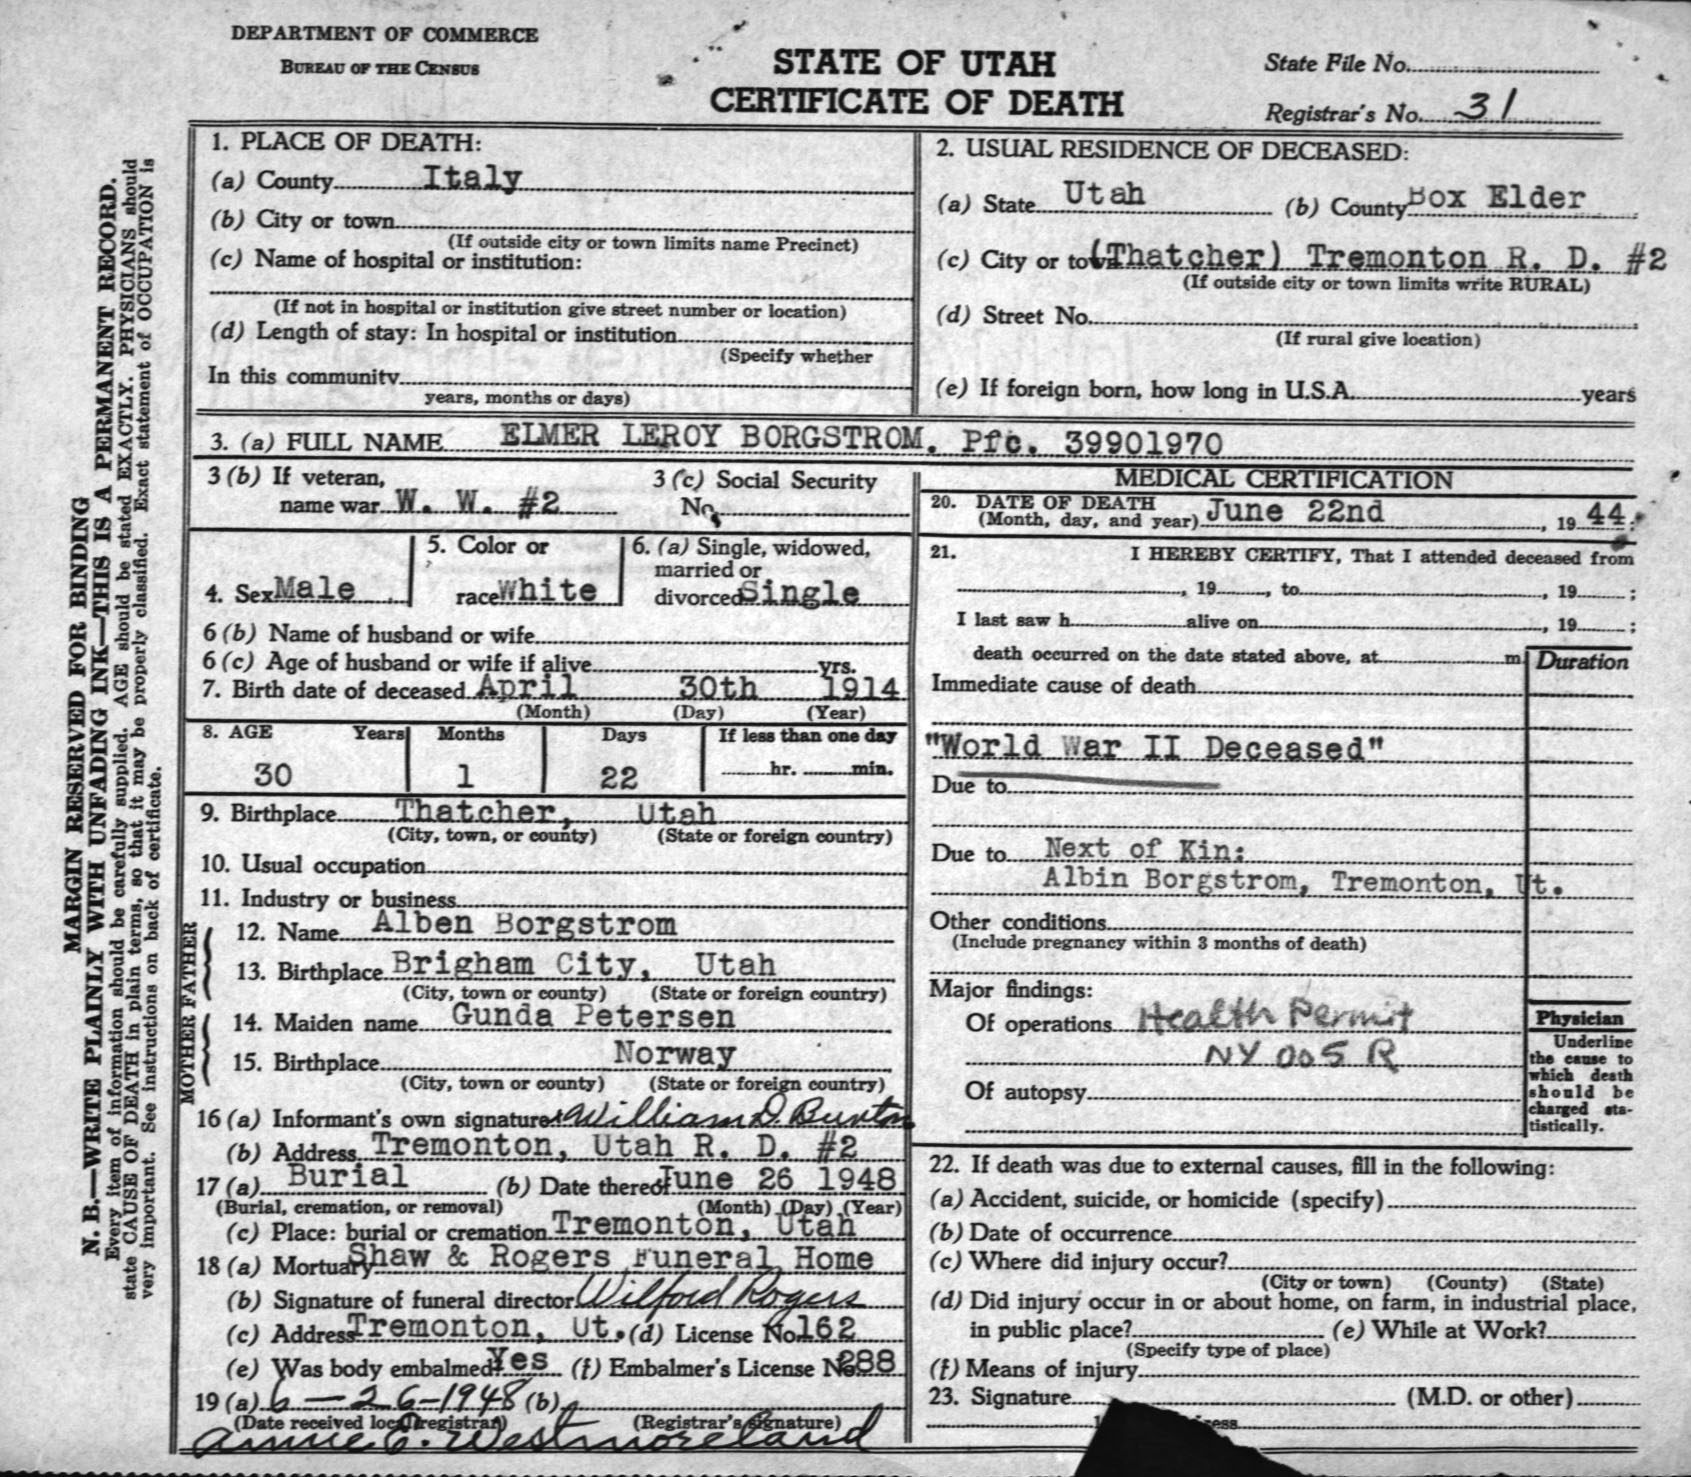 DEPARTMENT OF COMMERCE
BUREAU OF THE CENSUS
STATE OF UTAH
CERTIFICATE OF DEATH
State File No.
Registrar's No. 31
MARGIN RESERVED FOR BINDING
N. B.—WRITE PLAINLY WITH UNFADING INK—THIS IS A PERMANENT RECORD.
Every item of information should be carefully supplied. AGE should be stated EXACTLY. PHYSICIANS should
state CAUSE OF DEATH in plain terms, so that it may be properly classified. Exact statement of OCCUPATION is
very important. See instructions on back of certificate.
1. PLACE OF DEATH:
(a) County Italy
(b) City or town
(If outside city or town limits name Precinct)
(c) Name of hospital or institution:
(If not in hospital or institution give street number or location)
(d) Length of stay: In hospital or institution
(Specify whether
In this community
years, months or days)
2. USUAL RESIDENCE OF DECEASED:
(a) State Utah (b) County Box Elder
(c) City or town (Thatcher) Tremonton R. D. #2
(If outside city or town limits write RURAL)
(d) Street No.
(If rural give location)
(e) If foreign born, how long in U.S.A. years
3. (a) FULL NAME ELMER LEROY BORGSTROM, Pfc. 39901970
3 (b) If veteran,
name war W. W. #2
3 (c) Social Security
No.
4. Sex Male
5. Color or
race White
6. (a) Single, widowed,
married or
divorced Single
6 (b) Name of husband or wife
6 (c) Age of husband or wife if alive yrs.
7. Birth date of deceased April 30th 1914
(Month) (Day) (Year)
8. AGE Years Months Days If less than one day
30 1 22 hr. min.
9. Birthplace Thatcher, Utah
(City, town, or county) (State or foreign country)
10. Usual occupation
11. Industry or business
FATHER
12. Name Alben Borgstrom
13. Birthplace Brigham City, Utah
(City, town or county) (State or foreign country)
MOTHER
14. Maiden name Gunda Petersen
15. Birthplace Norway
(City, town or county) (State or foreign country)
16 (a) Informant's own signature William D. Burton
(b) Address Tremonton, Utah R. D. #2
17 (a) Burial (b) Date thereof June 26 1948
(Burial, cremation, or removal) (Month) (Day) (Year)
(c) Place: burial or cremation Tremonton, Utah
18 (a) Mortuary Shaw & Rogers Funeral Home
(b) Signature of funeral director Wilford Rogers
(c) Address Tremonton, Ut. (d) License No. 162
(e) Was body embalmed? Yes (f) Embalmer's License No. 288
19 (a) 6-26-1948 (b)
(Date received local registrar) (Registrar's signature)
Annie E. Westmoreland
MEDICAL CERTIFICATION
20. DATE OF DEATH
(Month, day, and year) June 22nd, 19 44.
21. I HEREBY CERTIFY, That I attended deceased from
, 19 , to , 19 ;
I last saw h alive on , 19 ;
death occurred on the date stated above, at m.
Duration
Immediate cause of death
"World War II Deceased"
Due to
Due to Next of Kin:
Albin Borgstrom, Tremonton, Ut.
Other conditions
(Include pregnancy within 3 months of death)
Major findings:
Of operations Health Permit
NY 005 R
Of autopsy
Physician
Underline
the cause to
which death
should be
charged sta-
tistically.
22. If death was due to external causes, fill in the following:
(a) Accident, suicide, or homicide (specify)
(b) Date of occurrence
(c) Where did injury occur?
(City or town) (County) (State)
(d) Did injury occur in or about home, on farm, in industrial place,
in public place? (e) While at Work?
(Specify type of place)
(f) Means of injury
23. Signature (M.D. or other)